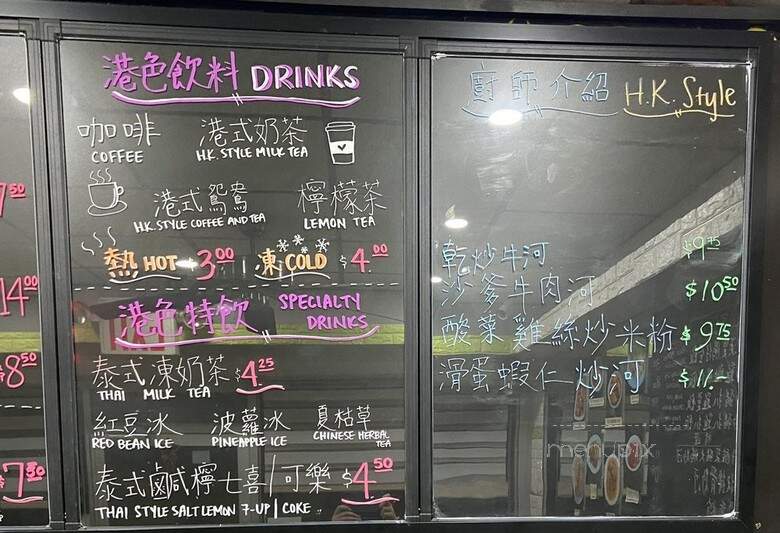 7.50
14.00
8.50
7.50
港色飲料 DRINKS
咖啡 港式奶茶
COFFEE H.K. STYLE MILK TEA
港式鴛鴦 檸檬茶
H.K. STYLE COFFEE AND TEA LEMON TEA
熱 HOT 3.00 凍 COLD $4.00
港色特飲 SPECIALTY DRINKS
泰式凍奶茶 $4.25
THAI MILK TEA
紅豆冰 波蘿冰 夏枯草
RED BEAN ICE PINEAPPLE ICE CHINESE HERBAL TEA
泰式鹹檸七喜/可樂 $4.50
THAI STYLE SALT LEMON 7-UP | COKE
廚師介紹 H.K. Style
乾炒牛河 $9.75
沙爹牛肉河 $10.50
酸菜雞絲炒米粉 $9.75
滑蛋蝦仁炒河 $11.-
menupix